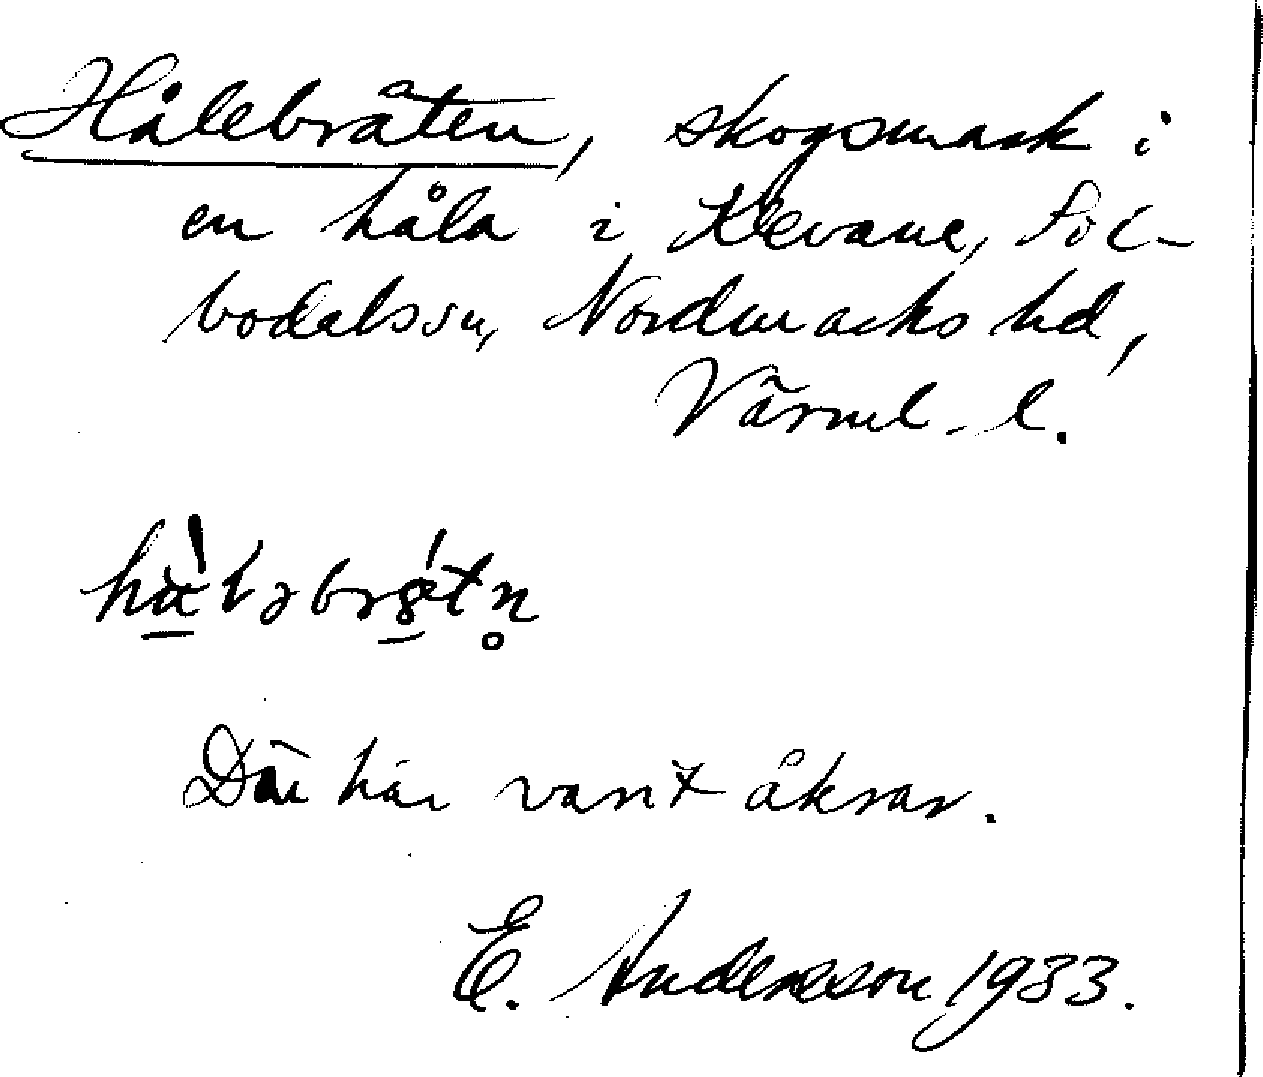 Hålebråten, skogsmark i
en håla i Klevane, Sil-
bodalssn, Nordmarks hd,
Värml. l.
Där har varit åkrar.
E. Andersson 1933.